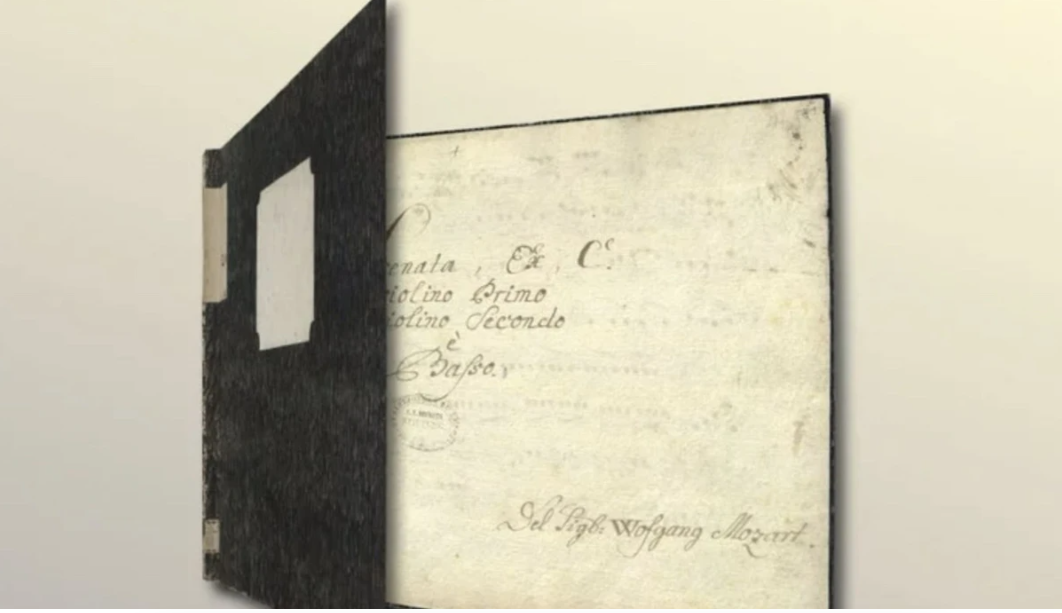 renata, Ex, C.
violino Primo
violino Secondo
è
Basso.
Del Sigb: Wofgang Mozart.